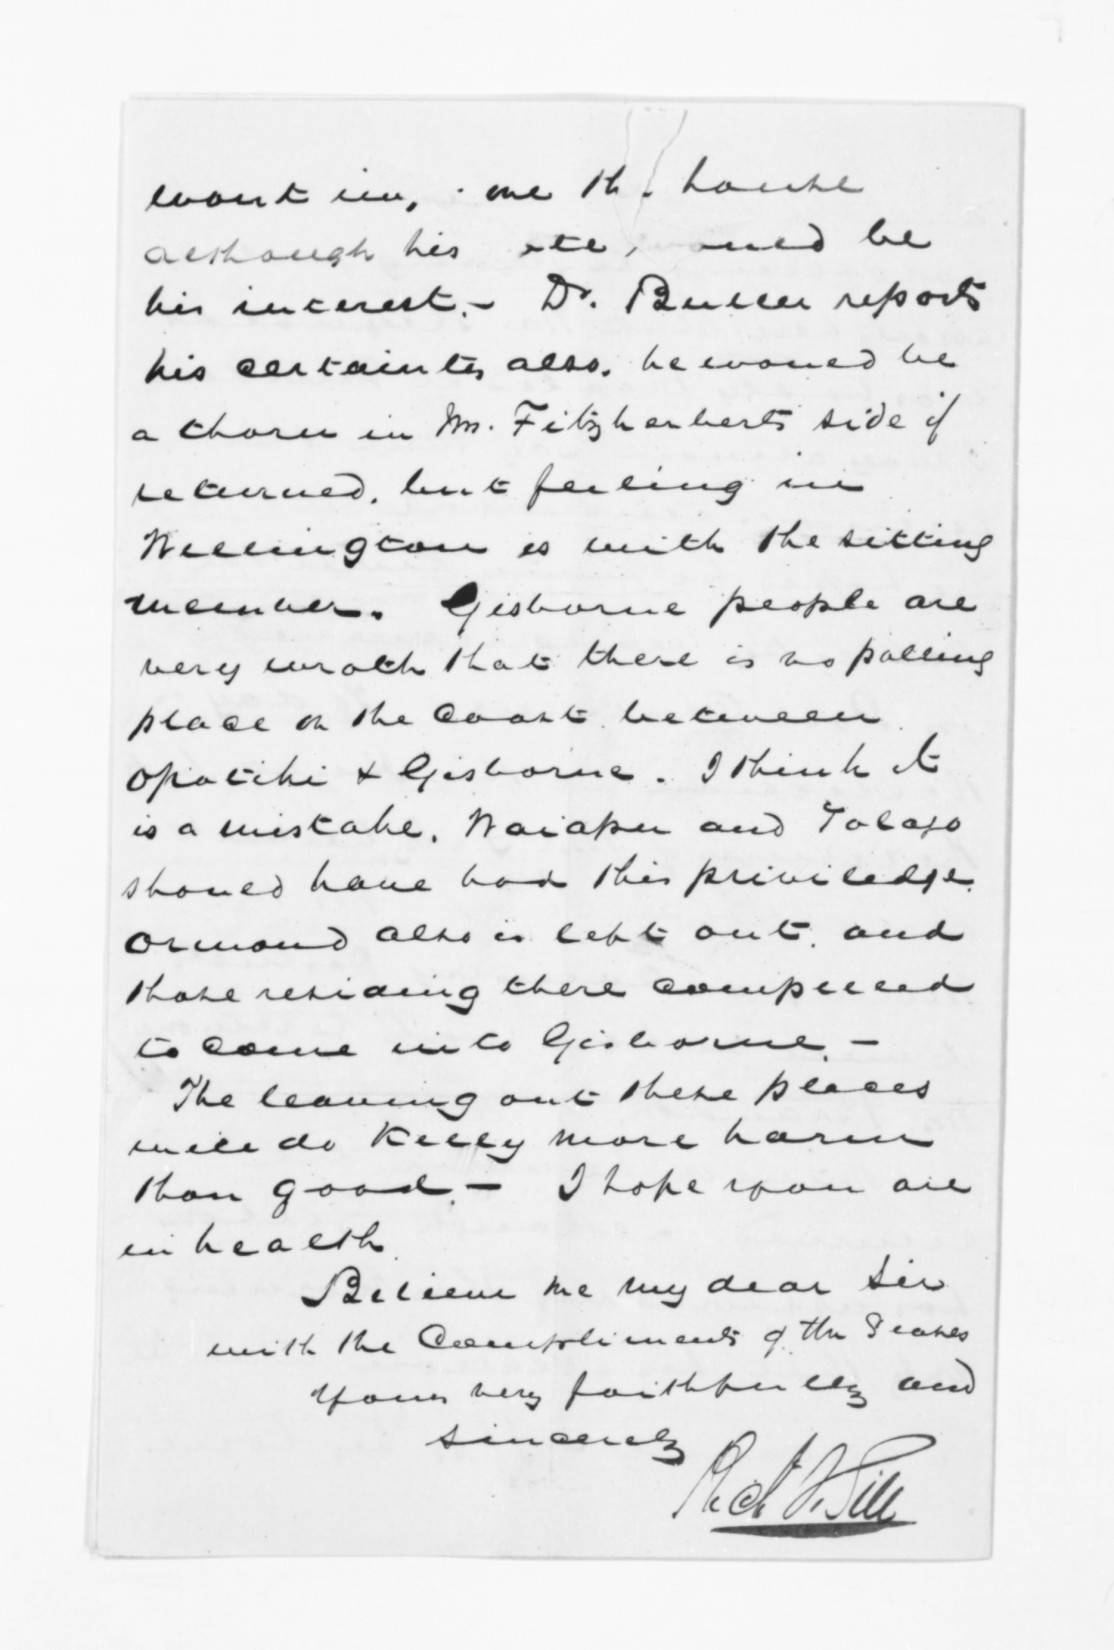 wont in, me the house
although his would be
his interest. - Dr. Buller reports
his certainty also. he would be
a thorn in Mr. Fitzherberts side if
returned, but feeling in
Wellington is with the sitting
member. Gisborne people are
very wroth that there is no polling
place on the Coast between
Opotiki & Gisborne. I think it
is a mistake. Waiapu and Tolago
should have had this priviledge.
Ormond also is left out. and
those residing there compelled
to come into Gisborne. -
The leaving out these places
will do Kelly more harm
than good. - I hope you are
in health.
Believe me my dear Sir
with the Compliments of the
Yours very faithfully and
sincerely